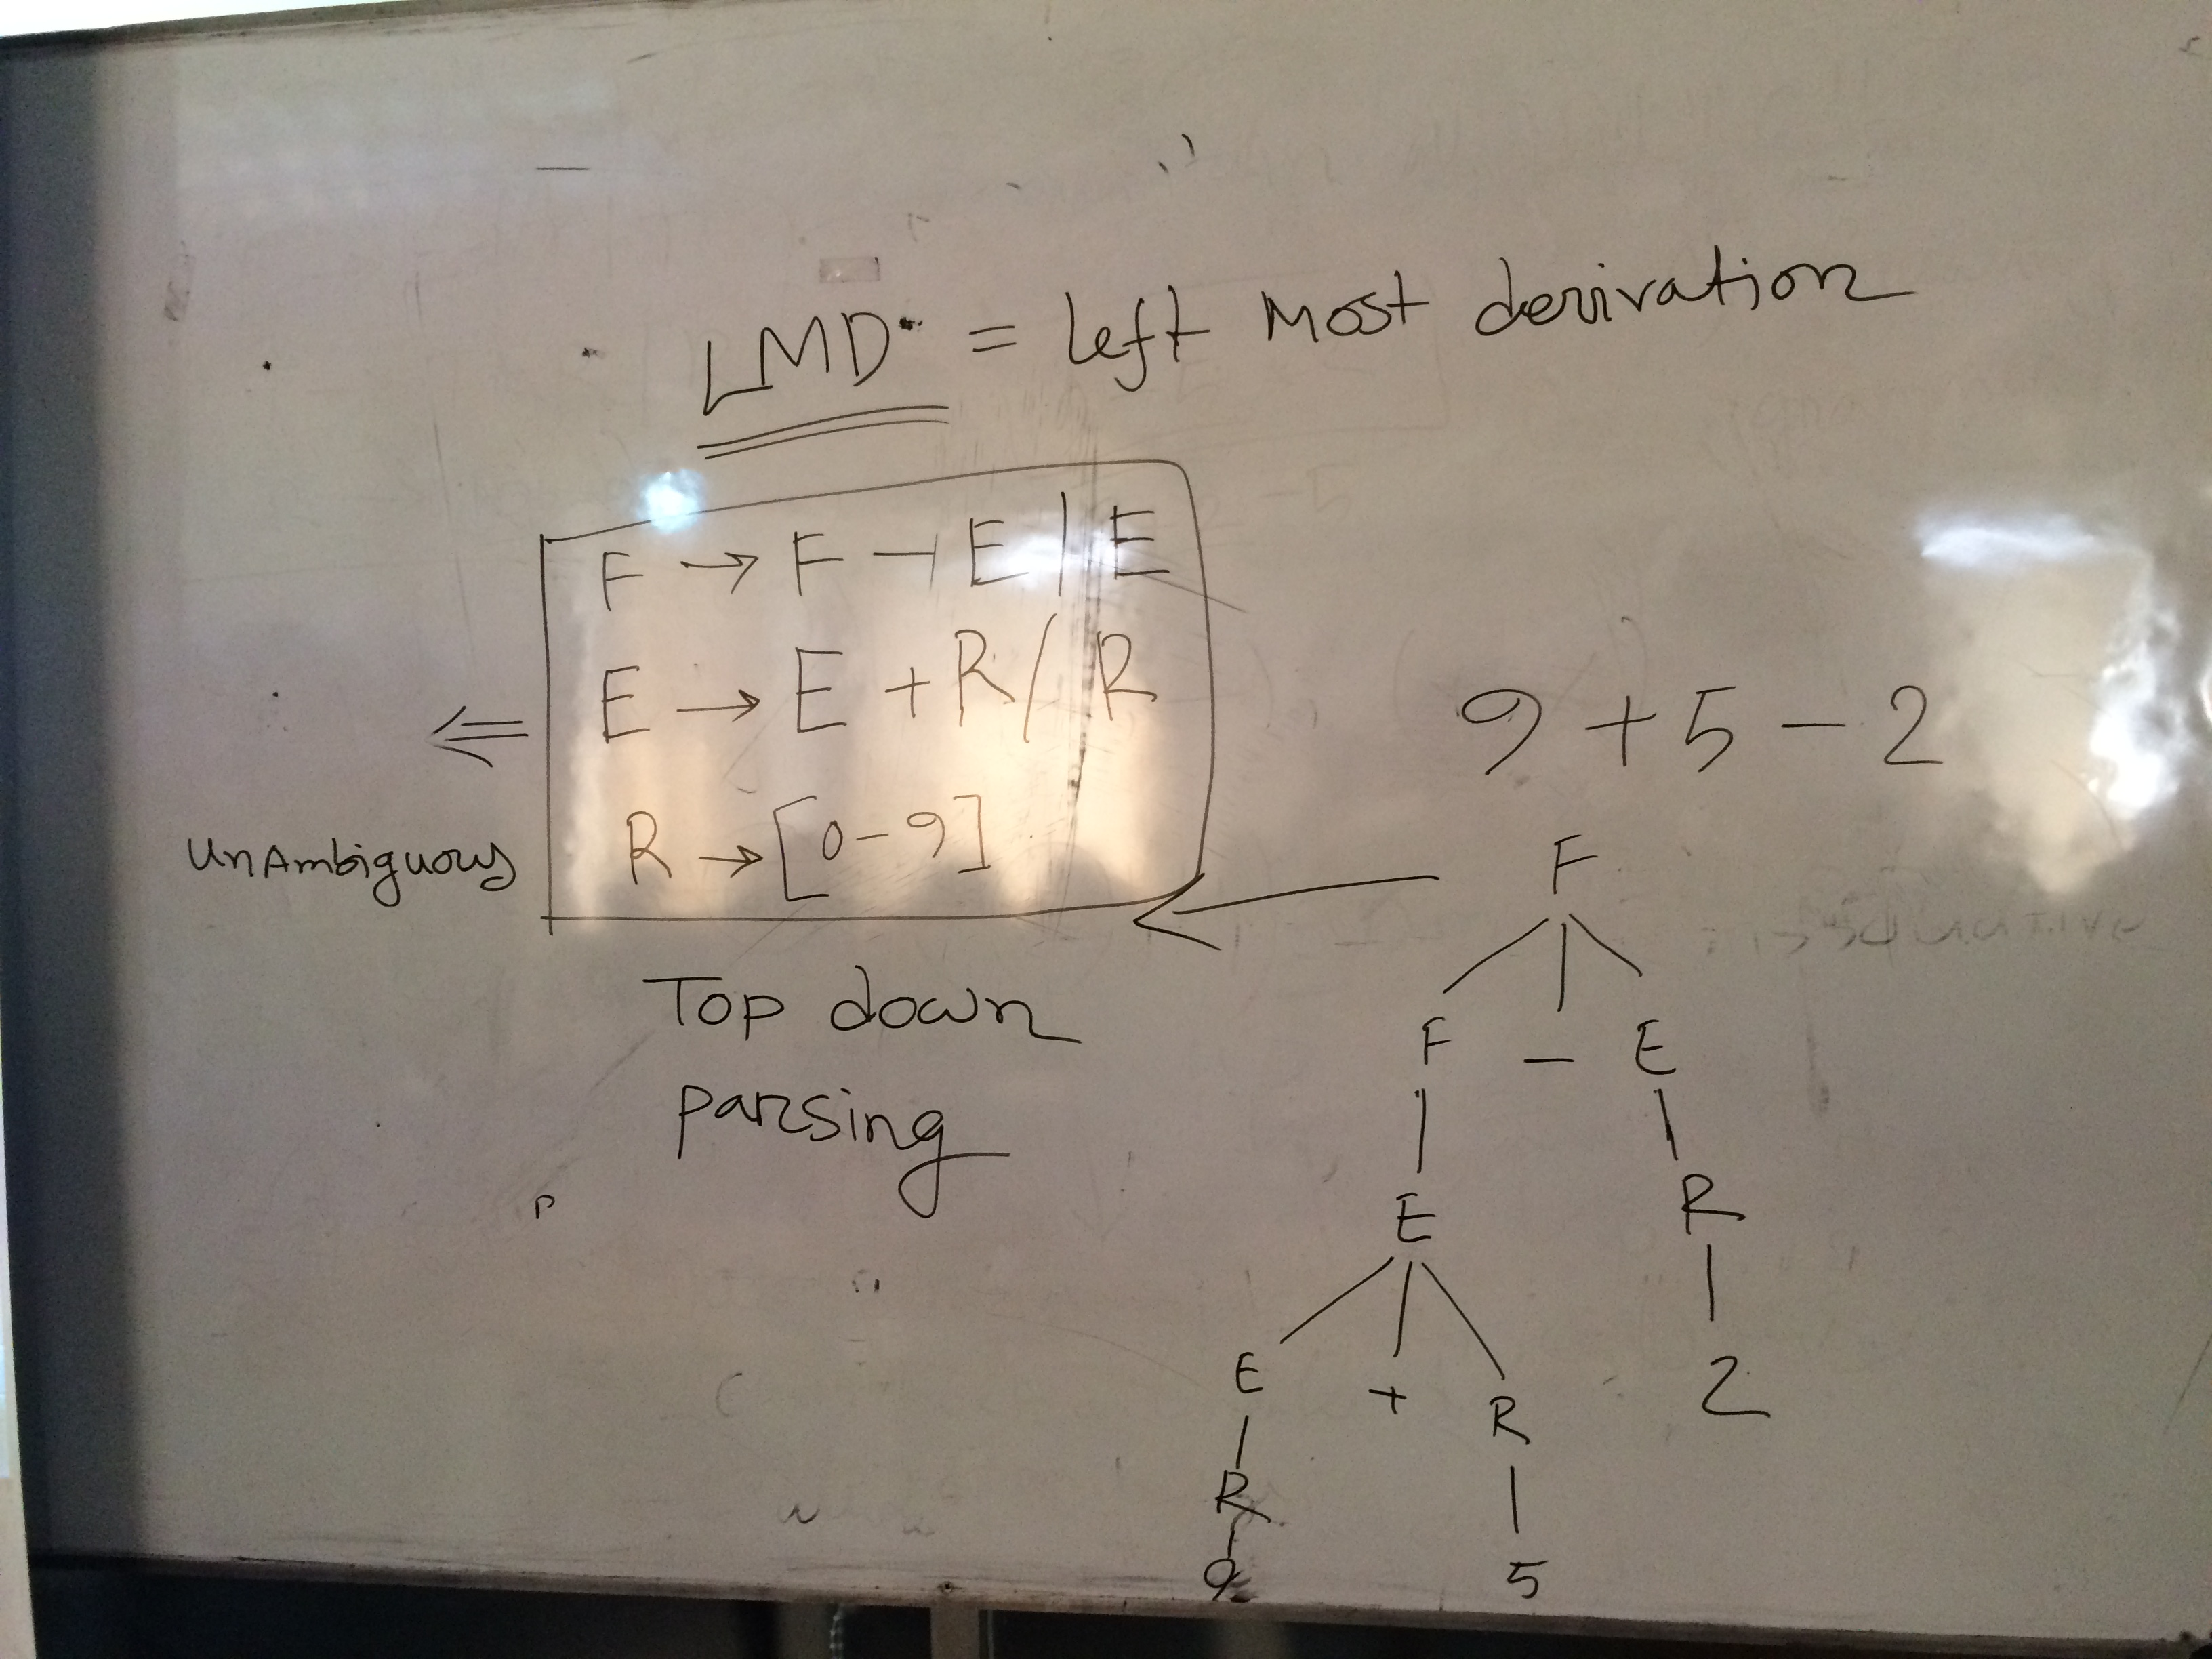 LMD = Left Most derivation
F → F - E | E
E → E + R / R
R → [0-9]
UnAmbiguous
Top down
parsing
9 + 5 - 2
F
F - E
E R
E + R 2
R
9 5